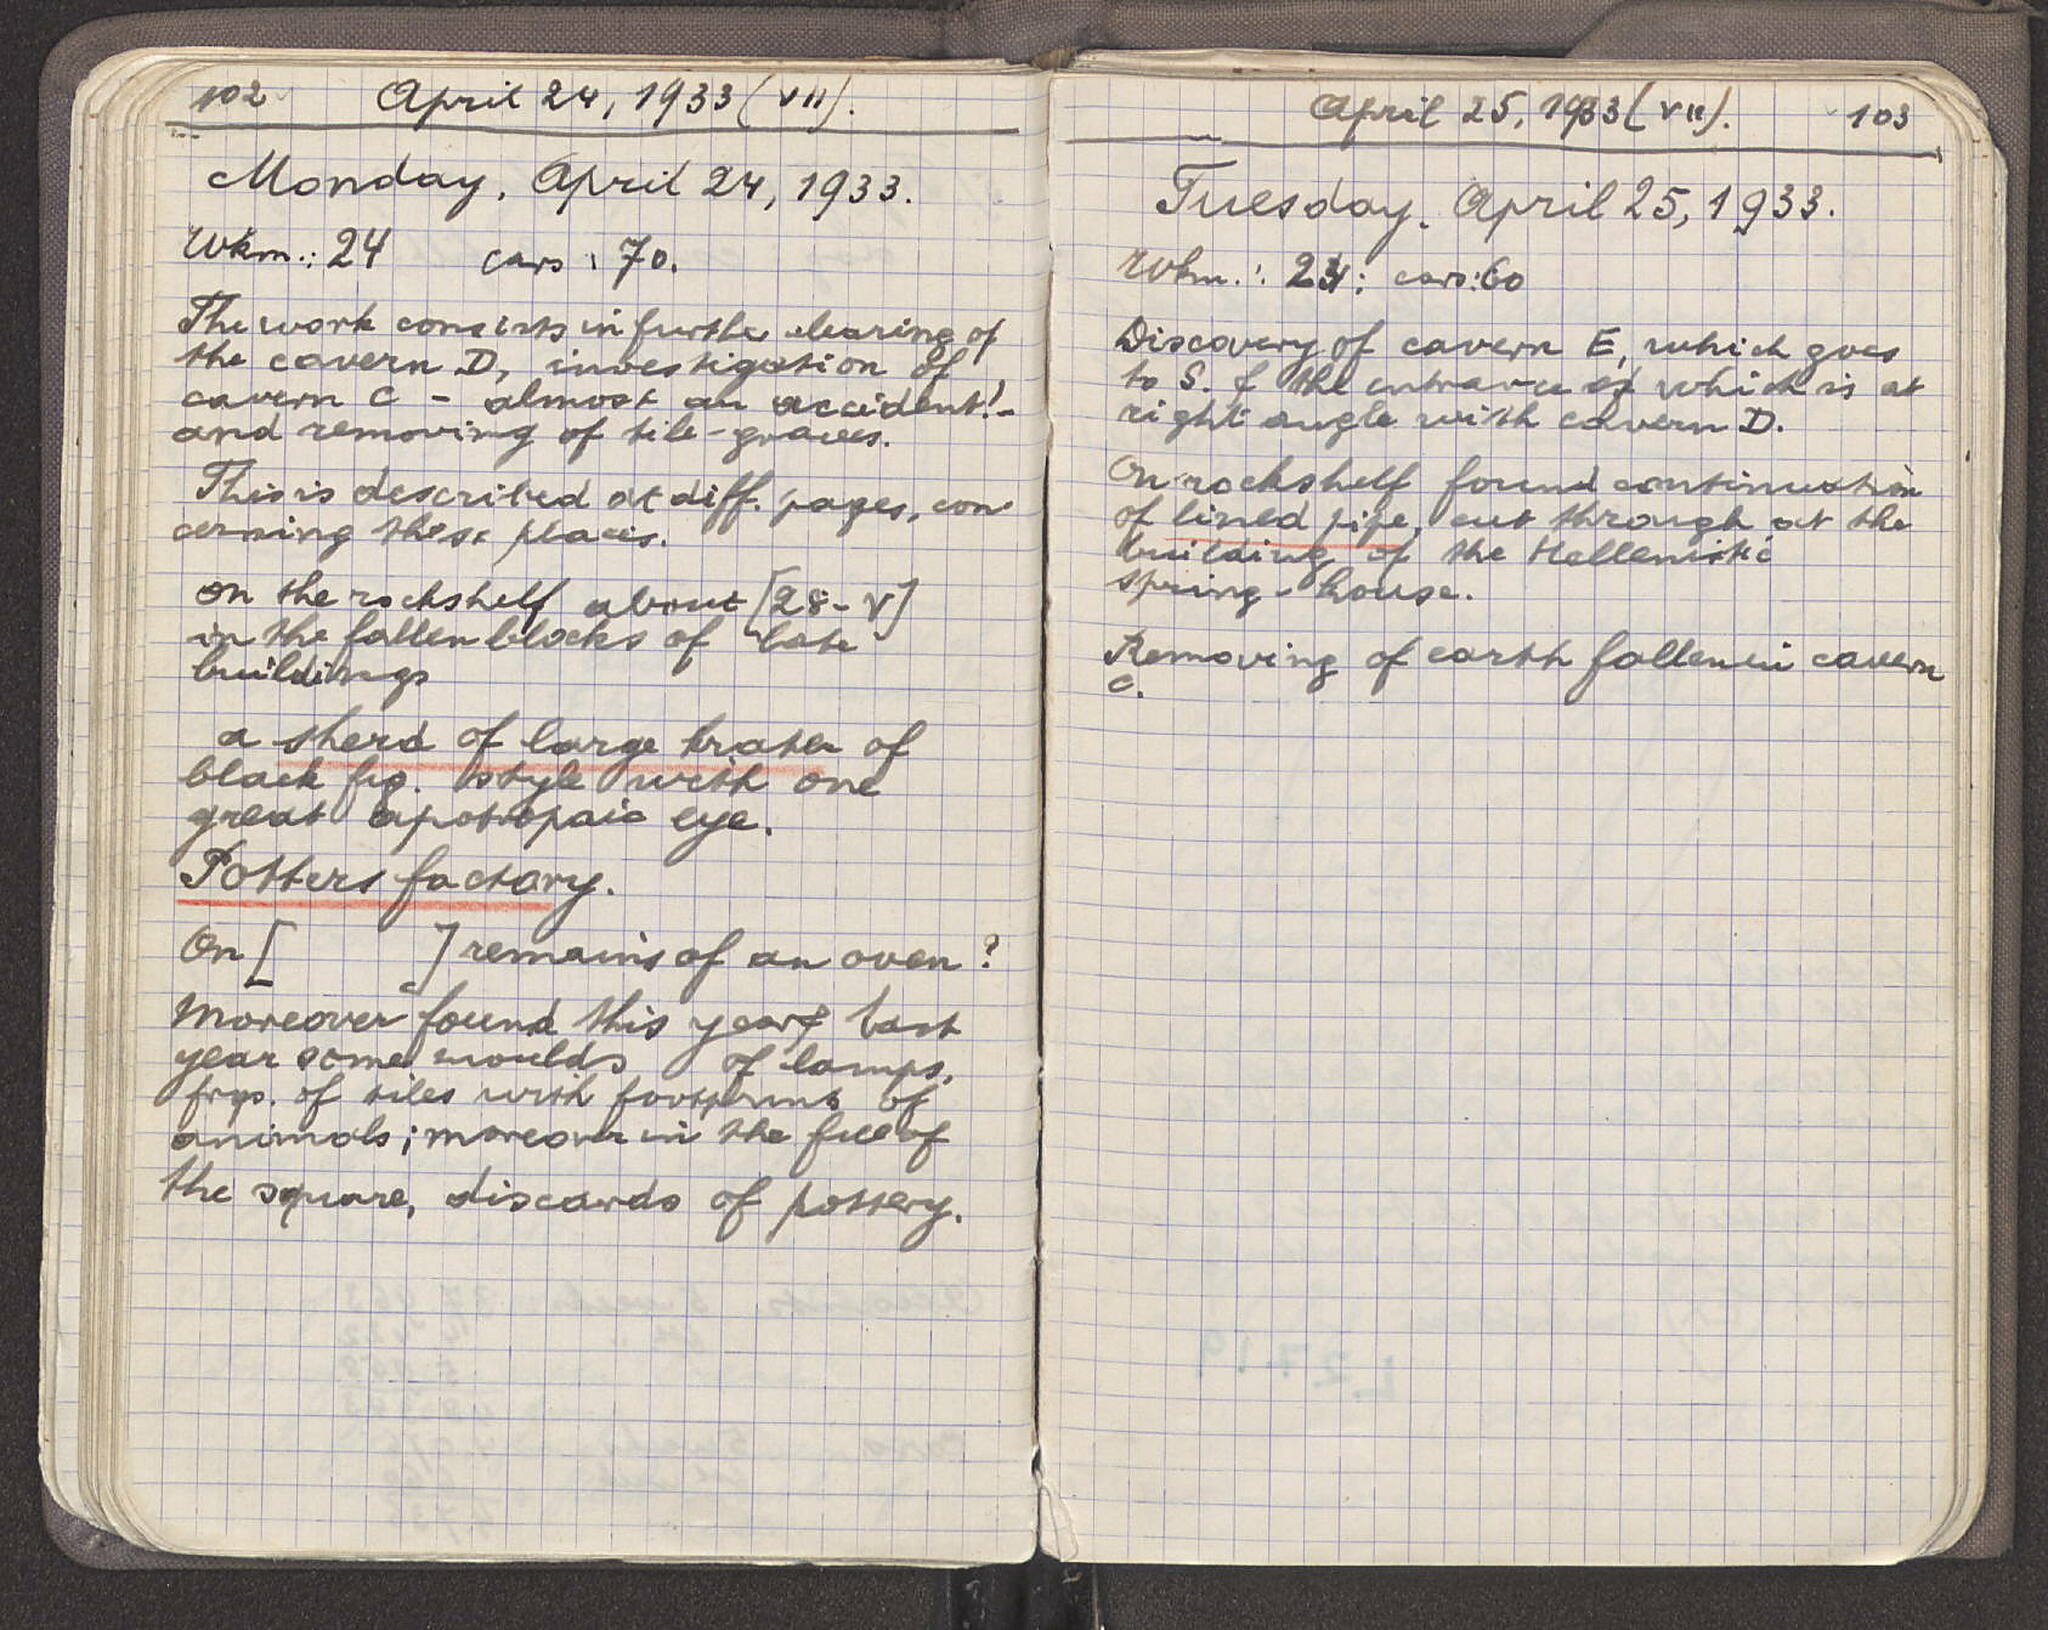 102 April 24, 1933 (VII).
Monday, April 24, 1933.
Wkm.: 24 cars : 70.
The work consists in further clearing of
the cavern D, investigation of
cavern C - almost an accident! -
and removing of tile-graves.
This is described at diff. pages, con
cerning these places.
On the rockshelf about [28-V]
in the fallen blocks of late
buildings
a sherd of large krater of
black fig. style with one
great apotropaic eye.
Potters factory.
On [ ] remains of an oven?
Moreover found this year & last
year some moulds of lamps,
frgs. of tiles with footprints of
animals; moreover in the fill of
the square, discards of pottery.
April 25, 1933 (VII). 103
Tuesday, April 25, 1933.
Wkm.: 24; cars: 60
Discovery of cavern E, which goes
to S. & the entrance of which is at
right angle with cavern D.
On rockshelf found continuation
of lined pipe, cut through at the
building of the Hellenistic
spring-house.
Removing of earth fallen in cavern
C.